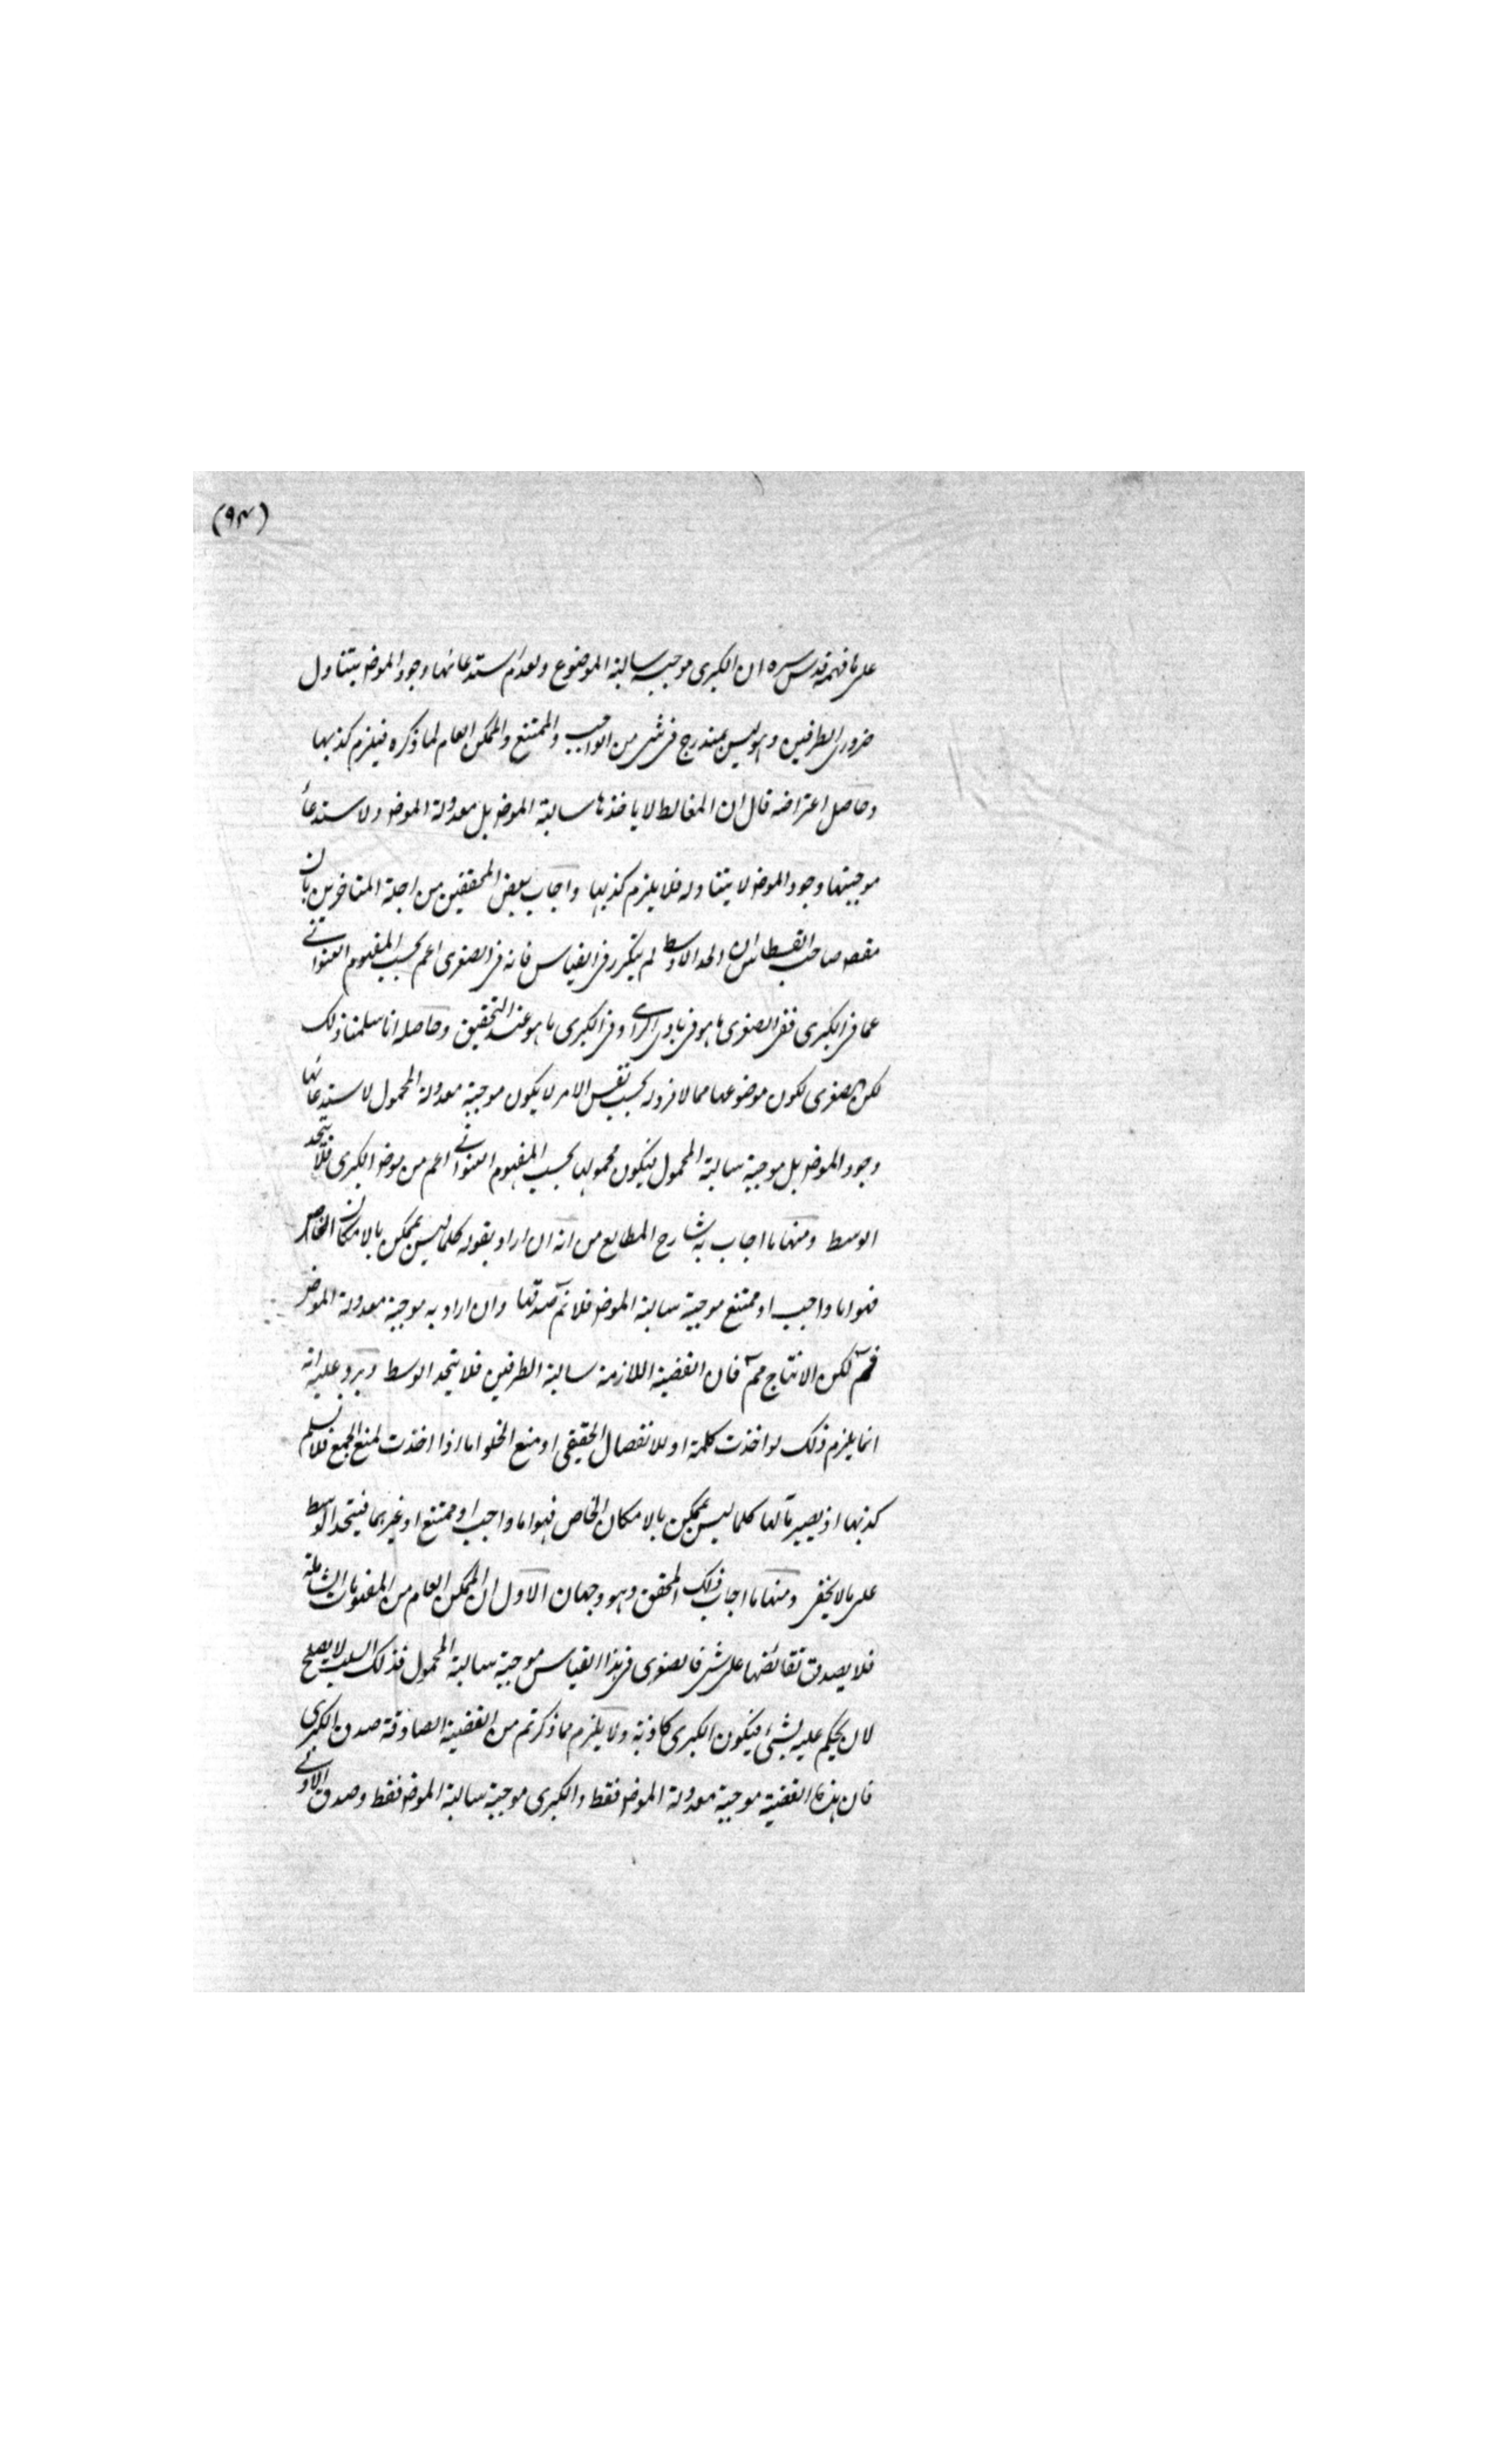 (۹۴)
على ما فهمه قدس سره ان الكبرى موجبة سالبة الموضوع ولعدم استدعائها وجود الموضو يتناول
ضرورى الطرفين وهو ليس بمندرج فى شى من الواجب والممتنع والممكن العام لما ذكره فيلزم كذبها
وحاصل اعتراضه قال ان المغالط لا ياخذها سالبة الموضو بل معدولة الموضو ولاستدعاء
موجبتها وجود الموضو لا يتناوله فلا يلزم كذبها واجاب بعض المحققين من اجلة المتاخرين بان
مقصو صاحب القسطاس ان الحد الاوسط لم يتكرر فى القياس فانه فى الصغرى اعم بحسب المفهوم العنوانى
عما فى الكبرى ففى الصغرى ما هو فى بادى الراى وفى الكبرى ما هو عند التحقيق وحاصله انا سلمنا ذلك
لكن الصغرى لكون موضوعها مما لا فرد له بحسب نفس الامر لا يكون موجبة معدولة المحمول لاستدعائها
وجود الموضو بل موجبة سالبة المحمول فيكون محمولها بحسب المفهوم العنوانى اعم من موضو الكبرى فلا يتحد
الوسط ومنها ما اجاب به شارح المطالع من انه ان اراد بقوله كلما ليس بممكن بالامكان الخاص
فهو اما واجب او ممتنع موجبة سالبة الموضو فلا نم صدقها وان اراد به موجبة معدولة الموضو
فم لكن الانتاج مم فان القضية اللازمة سالبة الطرفين فلا يتحد الوسط ويرد عليه انه
انما يلزم ذلك لو اخذت كلمة او للانفصال الحقيقى او منع الخلو اما اذا اخذت لمنع الجمع فلا نسلم
كذبها اذ يصير مآلها كلما ليس بممكن بالامكان الخاص فهو اما واجب او ممتنع او غيرهما فيتحد الوسط
على ما لا يخفى ومنها ما اجاب ذلك المحقق وهو وجهان الاول ان الممكن العام من المفهومات الشاملة
فلا يصدق نقائضها على شى فالصغرى فى هذا القياس موجبة سالبة المحمول فذلك السلب لا يصلح
لان يحكم عليه بشئ فيكون الكبرى كاذبة ولا يلزم مما ذكرتم من القضية الصادقة صدق الكبرى
فان هذه القضية موجبة معدولة الموضو فقط والكبرى موجبة سالبة الموضو فقط وصدق الاولى